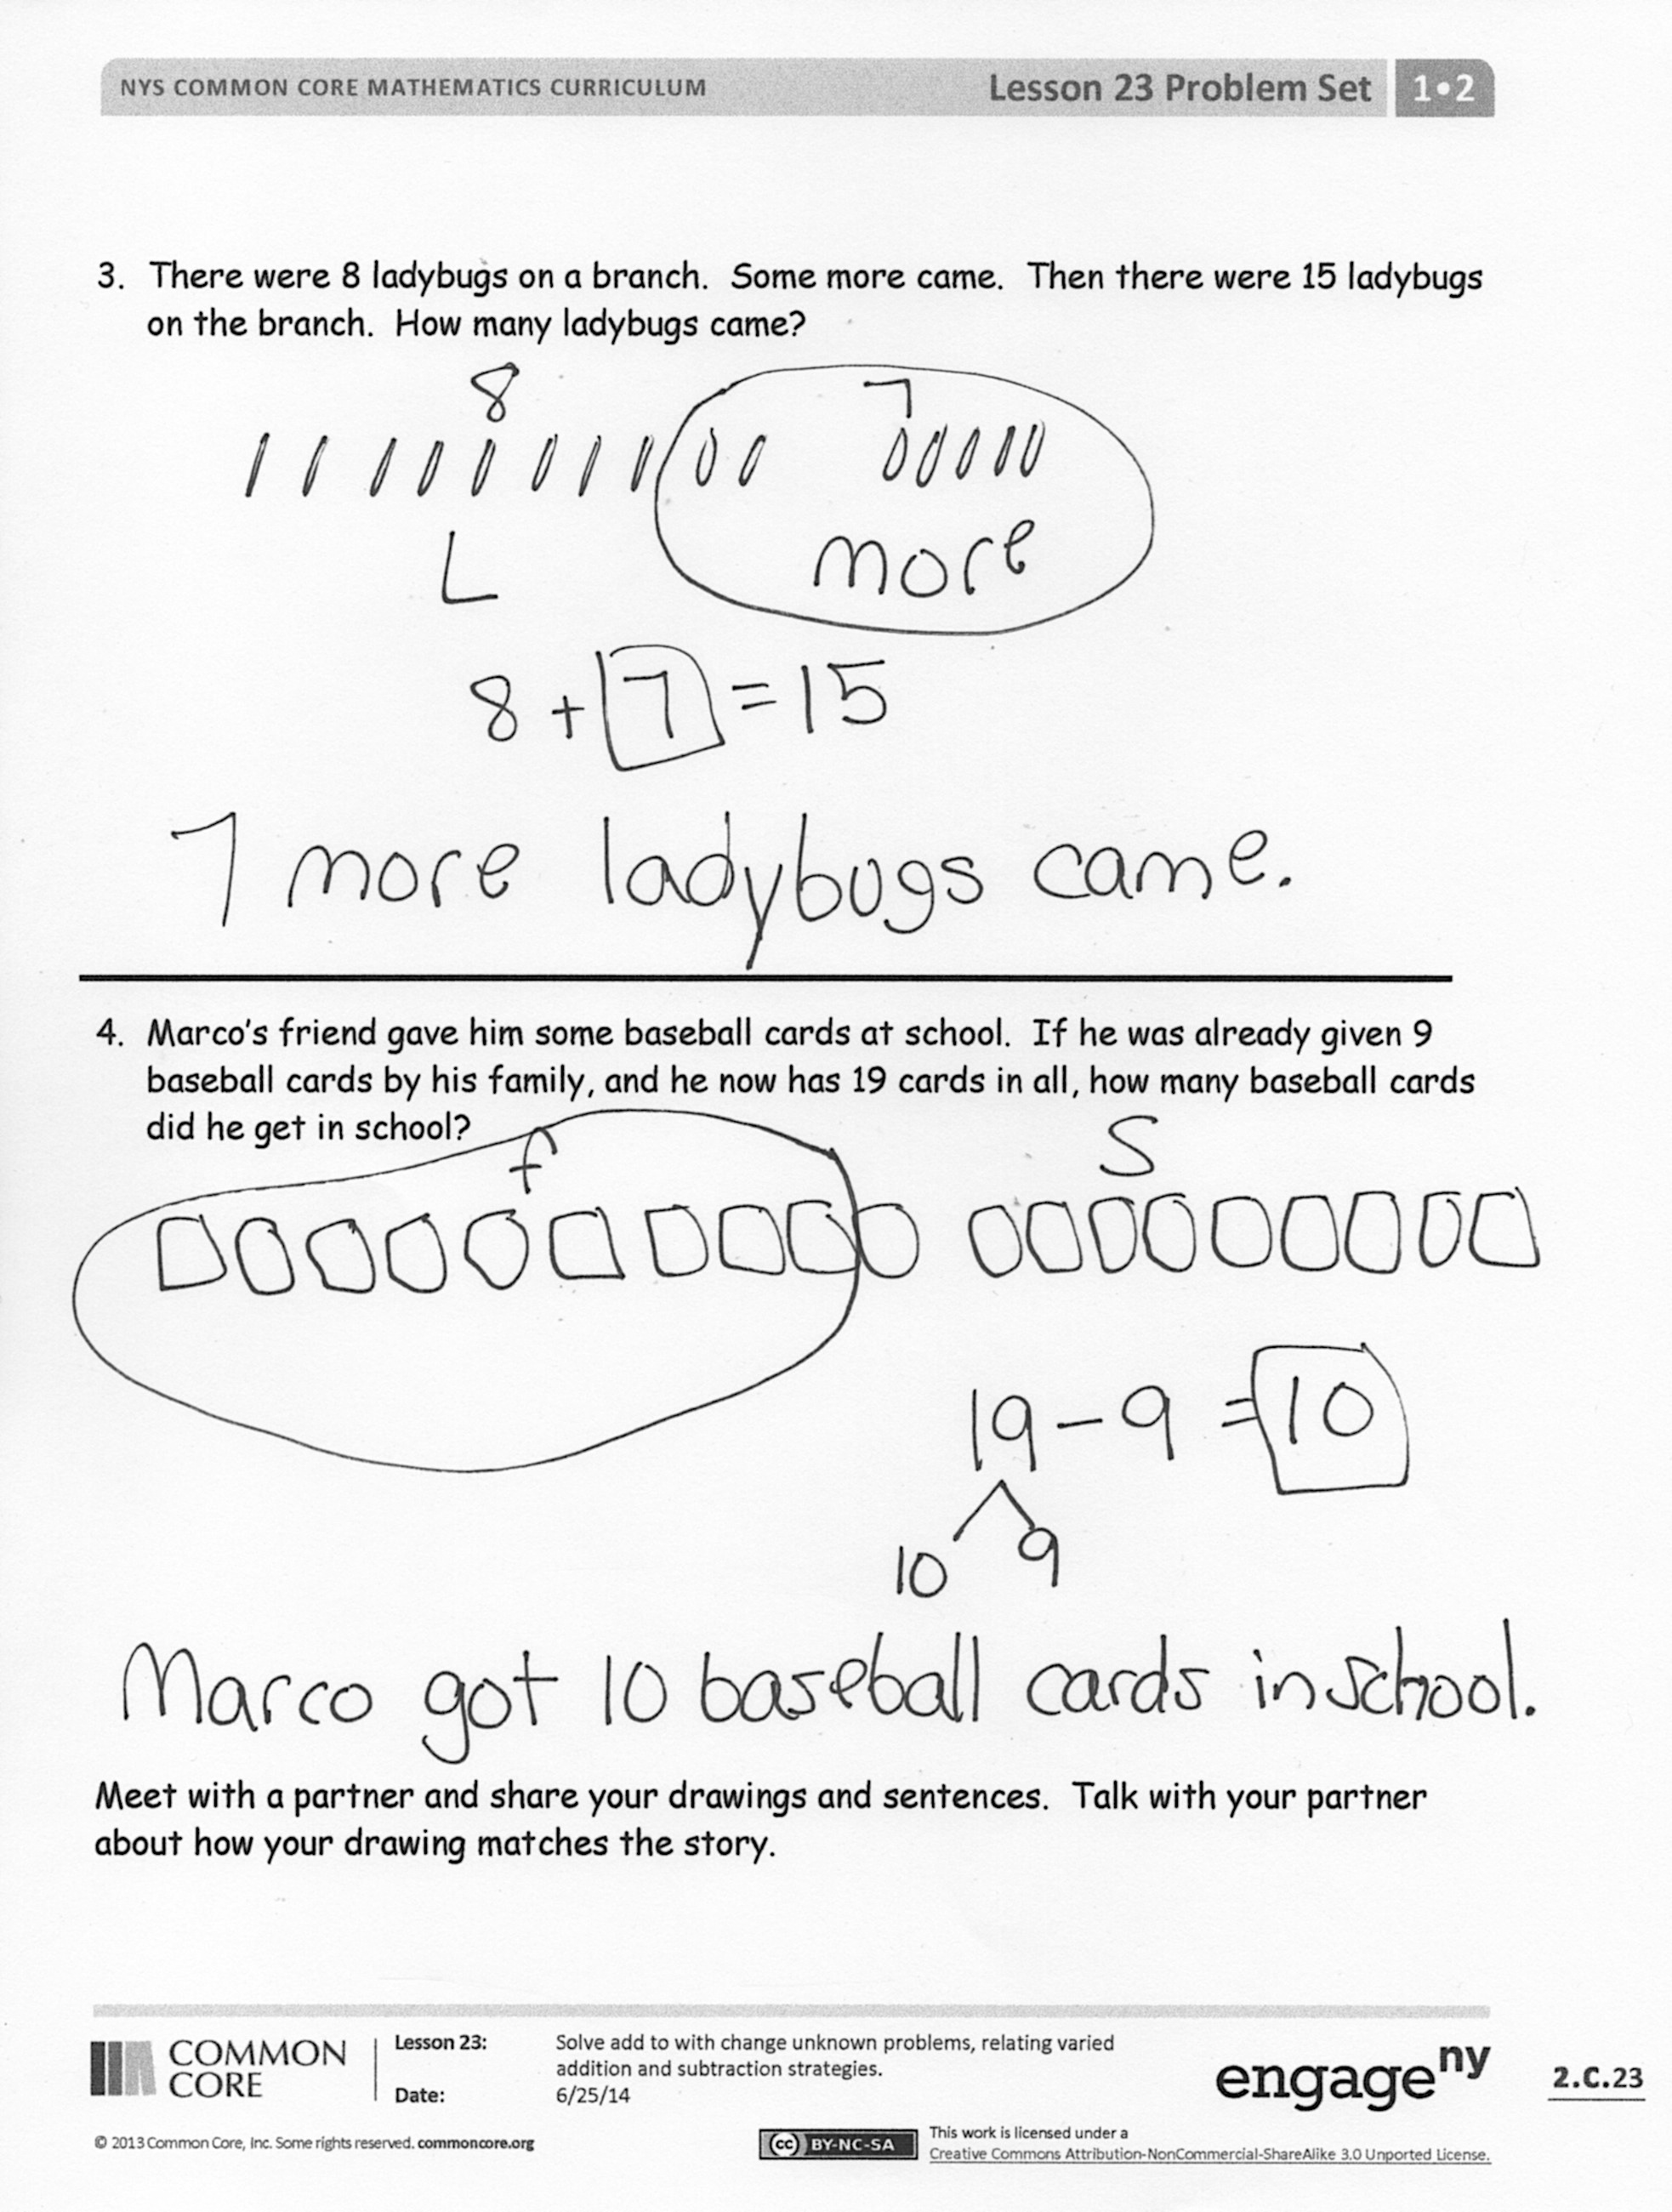 NYS COMMON CORE MATHEMATICS CURRICULUM Lesson 23 Problem Set 1•2
3. There were 8 ladybugs on a branch. Some more came. Then there were 15 ladybugs
on the branch. How many ladybugs came?
8 7
L more
8 + 7 = 15
7 more ladybugs came.
4. Marco's friend gave him some baseball cards at school. If he was already given 9
baseball cards by his family, and he now has 19 cards in all, how many baseball cards
did he get in school?
f S
19 - 9 = 10
10 9
Marco got 10 baseball cards in school.
Meet with a partner and share your drawings and sentences. Talk with your partner
about how your drawing matches the story.
COMMON
CORE
Lesson 23: Solve add to with change unknown problems, relating varied
addition and subtraction strategies.
Date: 6/25/14
engage ny
2.C.23
© 2013 Common Core, Inc. Some rights reserved. commoncore.org
cc BY-NC-SA
This work is licensed under a
Creative Commons Attribution-NonCommercial-ShareAlike 3.0 Unported License.